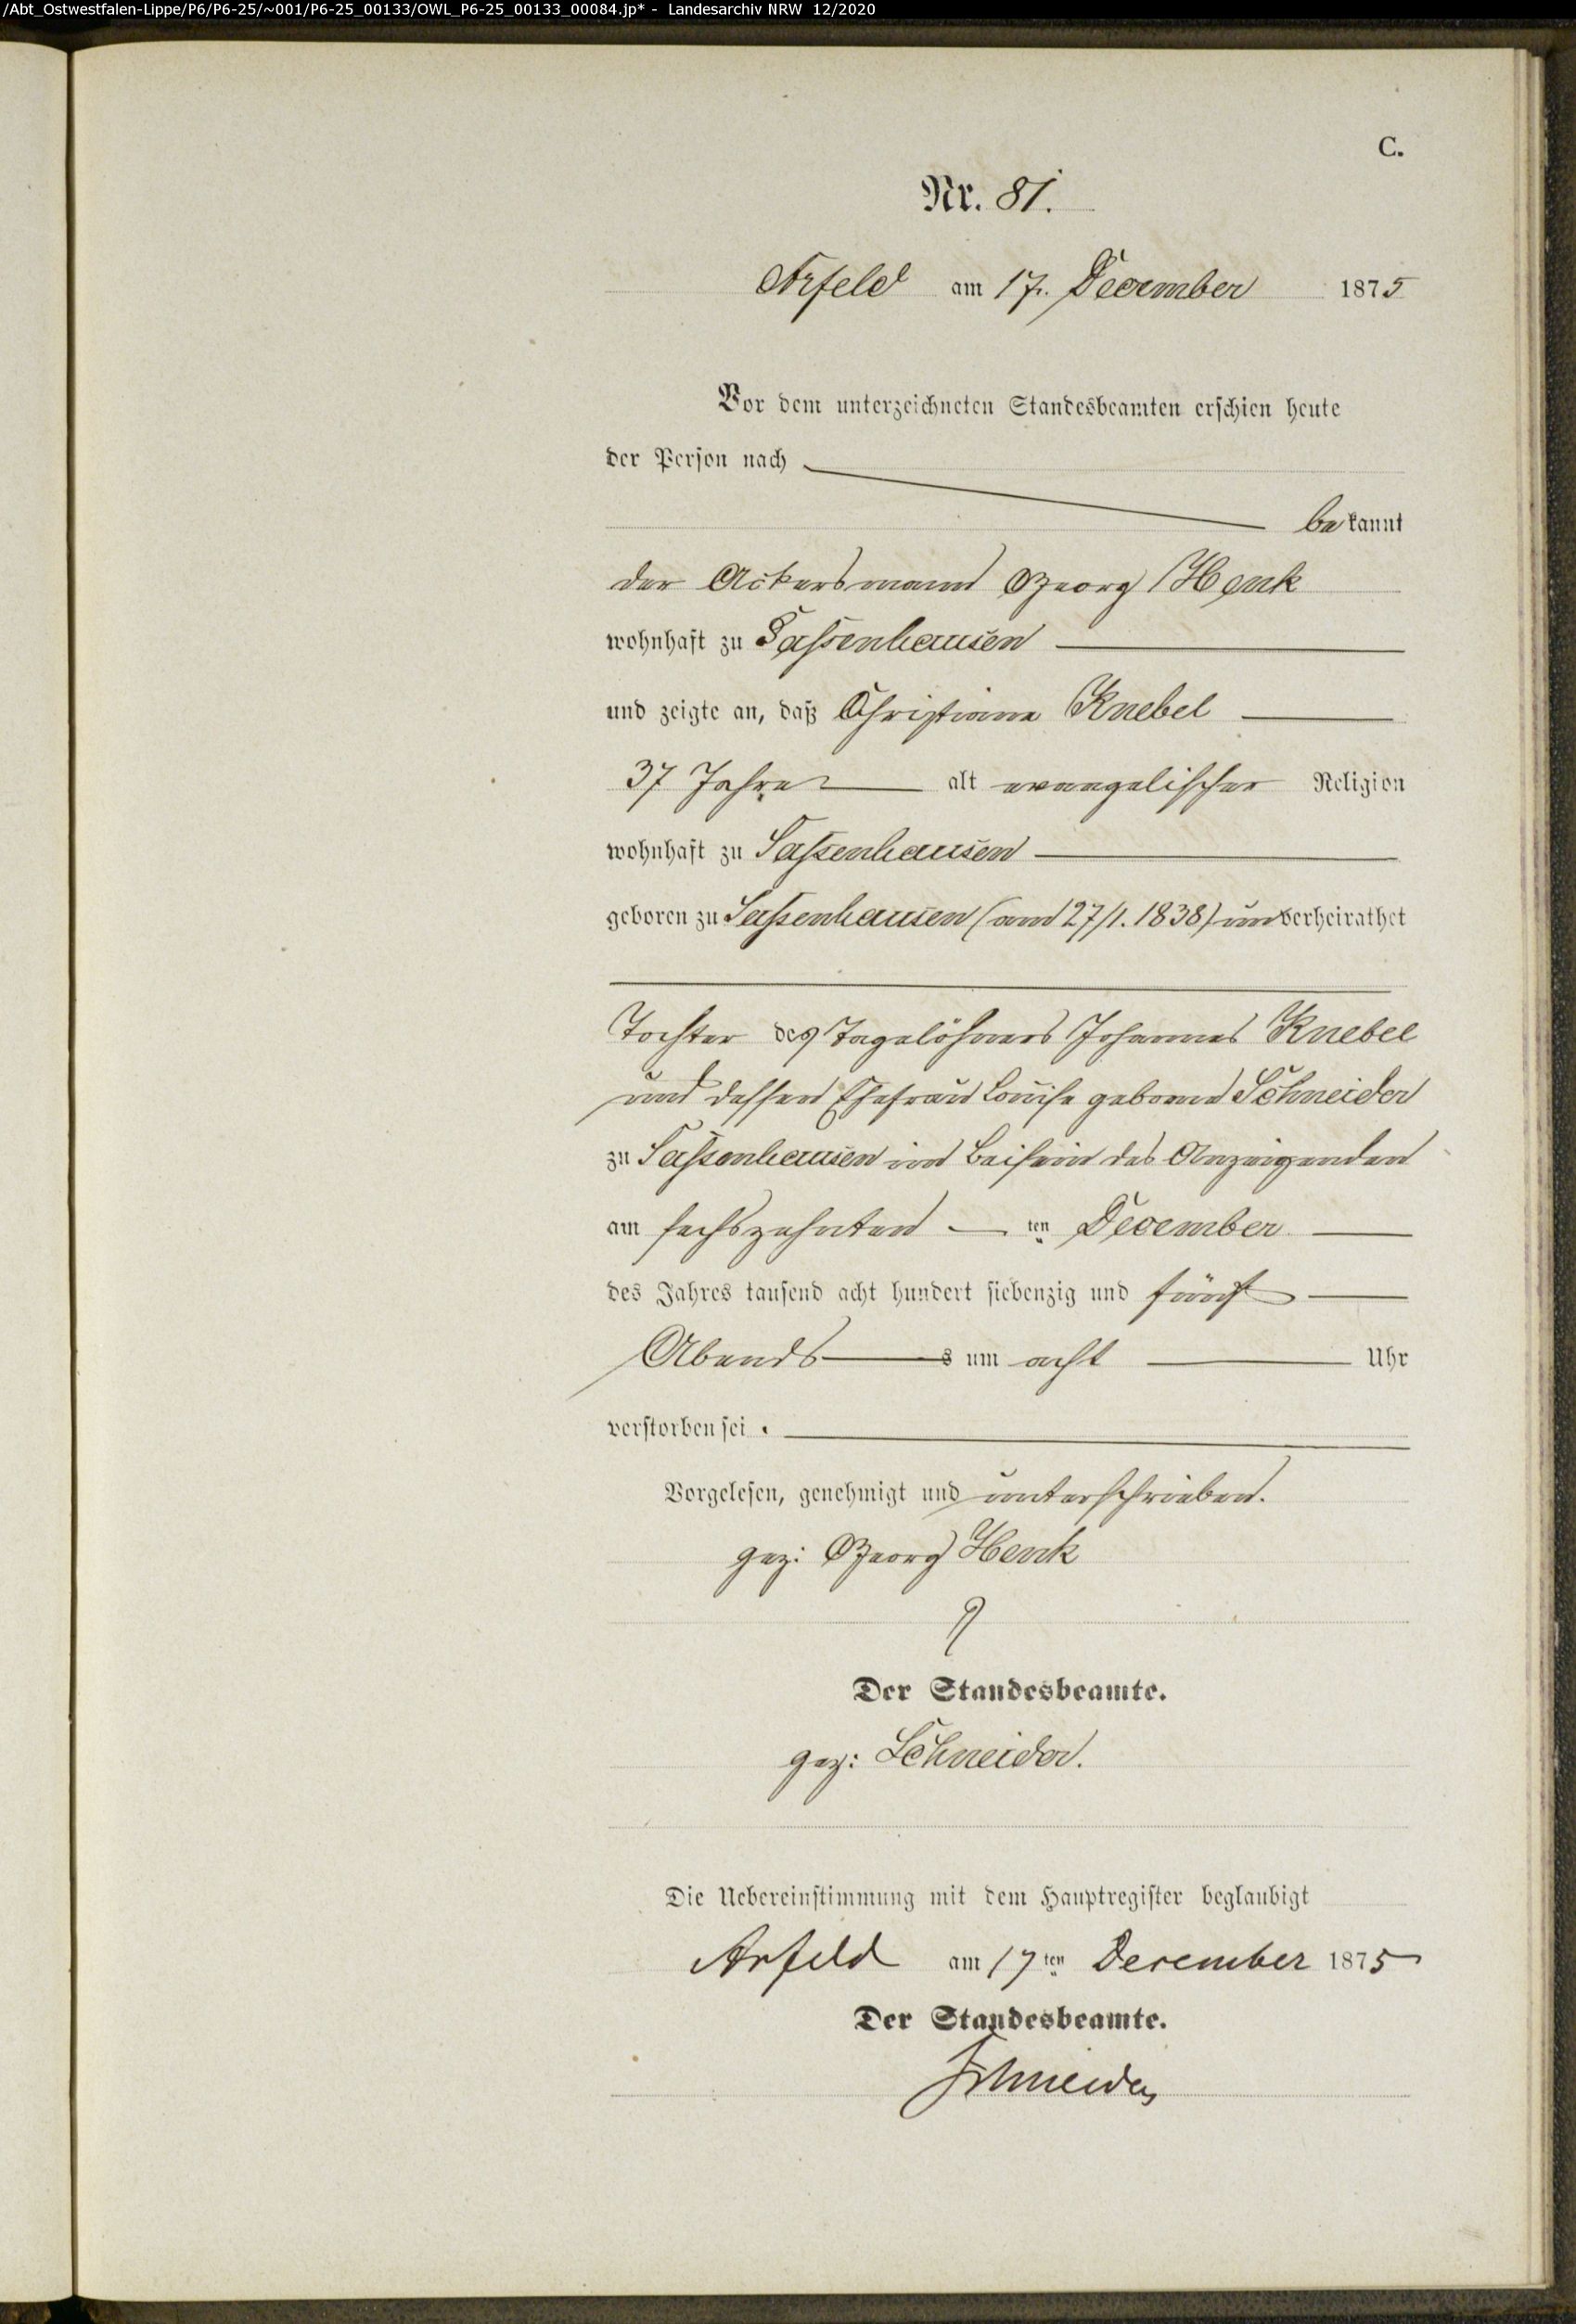 /Abt_Ostwestfalen-Lippe/P6/P6-25/~001/P6-25_00133/OWL_P6-25_00133_00084.jp* - Landesarchiv NRW 12/2020
C.
Nr. 81.
Arfeld am 17. December 1875
Vor dem unterzeichneten Standesbeamten erschien heute
der Person nach
bekannt
der Ackersmann Georg Henk
wohnhaft zu Sassenhausen
und zeigte an, daß Christiane Knebel
37 Jahre alt evangelischer Religion
wohnhaft zu Sassenhausen
geboren zu Sassenhausen (am 27/1. 1838) unverheirathet
Tochter des Tagelöhners Johannes Knebel
und dessen Ehefrau Louise geborene Schneider
zu Sassenhausen im Beisein des Anzeigenden
am sechszehnten ten December
des Jahres tausend acht hundert siebenzig und fünf
Abends s um acht Uhr
verstorben sei.
Vorgelesen, genehmigt und unterschrieben.
gez: Georg Henk
Der Standesbeamte.
gez: Schneider.
Die Uebereinstimmung mit dem Hauptregister beglaubigt
Arfeld am 17ten December 1875
Der Standesbeamte.
Schneider